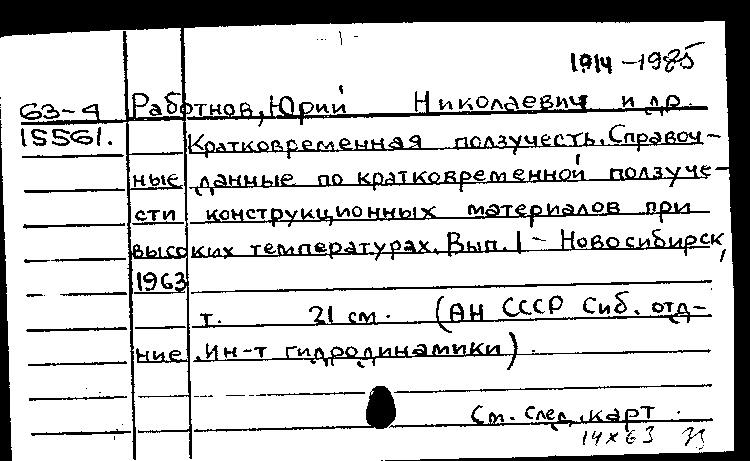 - 1 -
1914-1985
63-4 Работнов, Юрий Николаевич и др.
15561. Кратковременная ползучесть. Справоч-
ные данные по кратковременной ползуче-
сти конструкционных материалов при
высоких температурах. Вып. 1 - Новосибирск,
1963
т. 21 см. (АН СССР Сиб. отд-
ние. Ин-т гидродинамики).
См. след. карт.
14 х 63